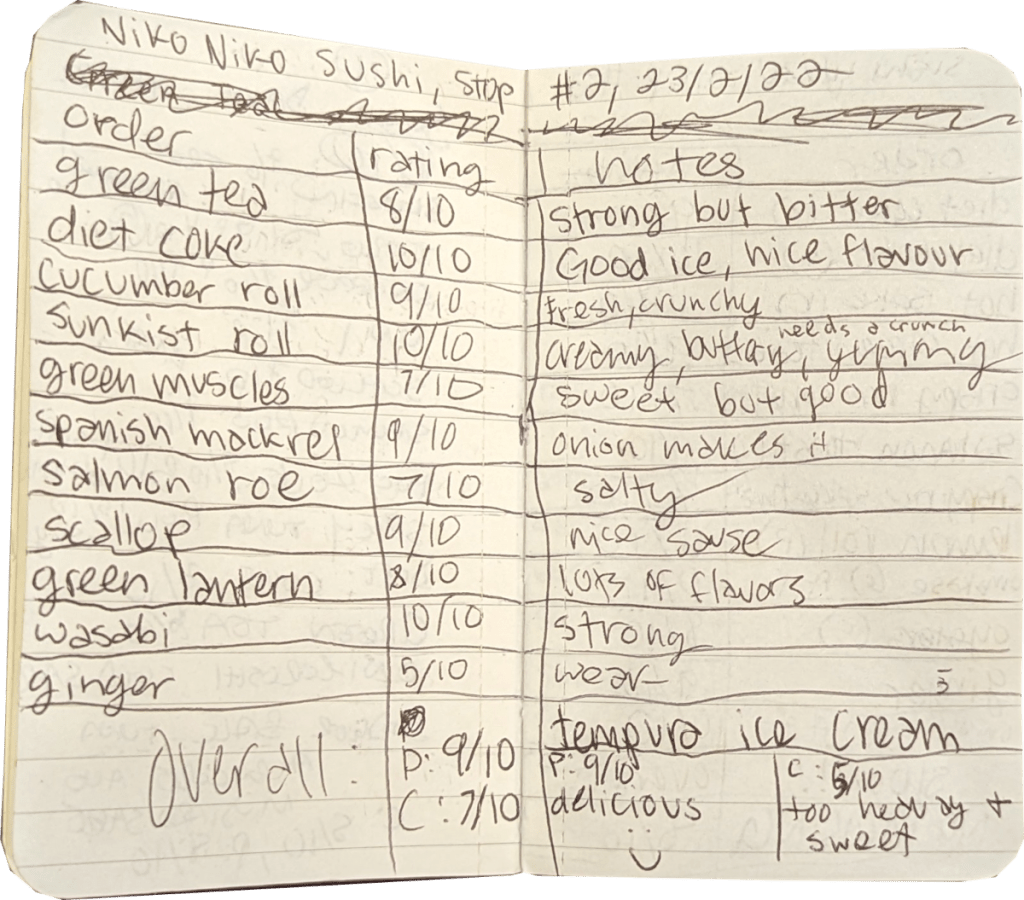 Niko Niko Sushi, stop #2, 23/2/22
Green tea
order | rating | notes
green tea 8/10 strong but bitter
diet coke 10/10 Good ice, nice flavour
cucumber roll 9/10 fresh, crunchy
needs a crunch
sunkist roll 10/10 creamy, buttay, yummy
green muscles 7/10 sweet but good
spanish mackrel 9/10 onion makes it
salmon roe 7/10 salty
scallop 9/10 nice sause
green lantern 8/10 lots of flavors
wasabi 10/10 strong
ginger 5/10 wear
5
Overall: P: 9/10
C: 7/10
tempura ice cream
P: 9/10
delicious
C: 5/10
too heavy +
sweet